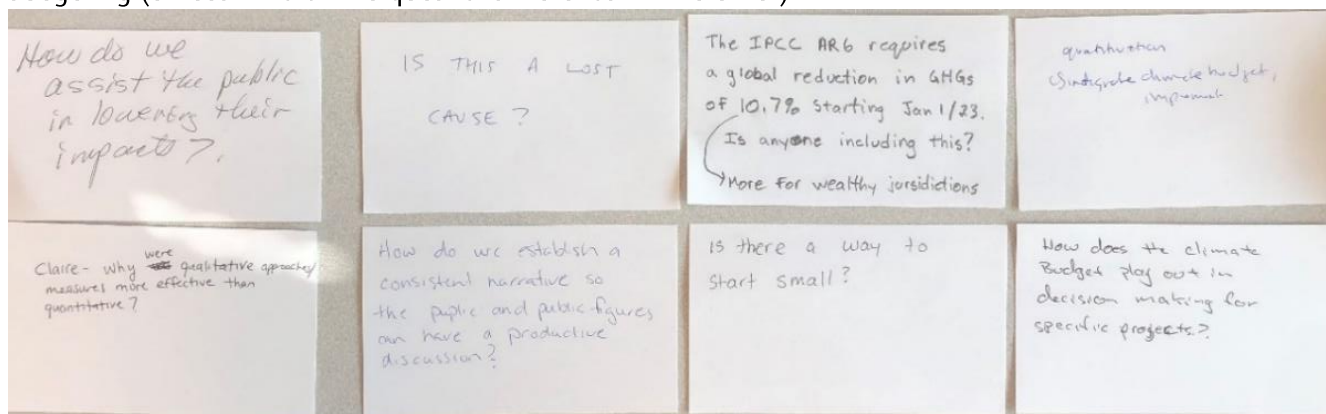 How do we
assist the public
in lowering their
impacts?
IS THIS A LOST
CAUSE?
The IPCC AR6 requires
a global reduction in GHGs
of 10.7% starting Jan 1/23.
Is anyone including this?
More for wealthy jursidictions
climate budget,
Claire - why were qualitative approaches/
measures more effective than
quantitative?
How do we establish a
consistent narrative so
the puplic and public figures
can have a productive
discussion?
Is there a way to
start small?
How does the climate
Budget play out in
decision making for
specific projects?